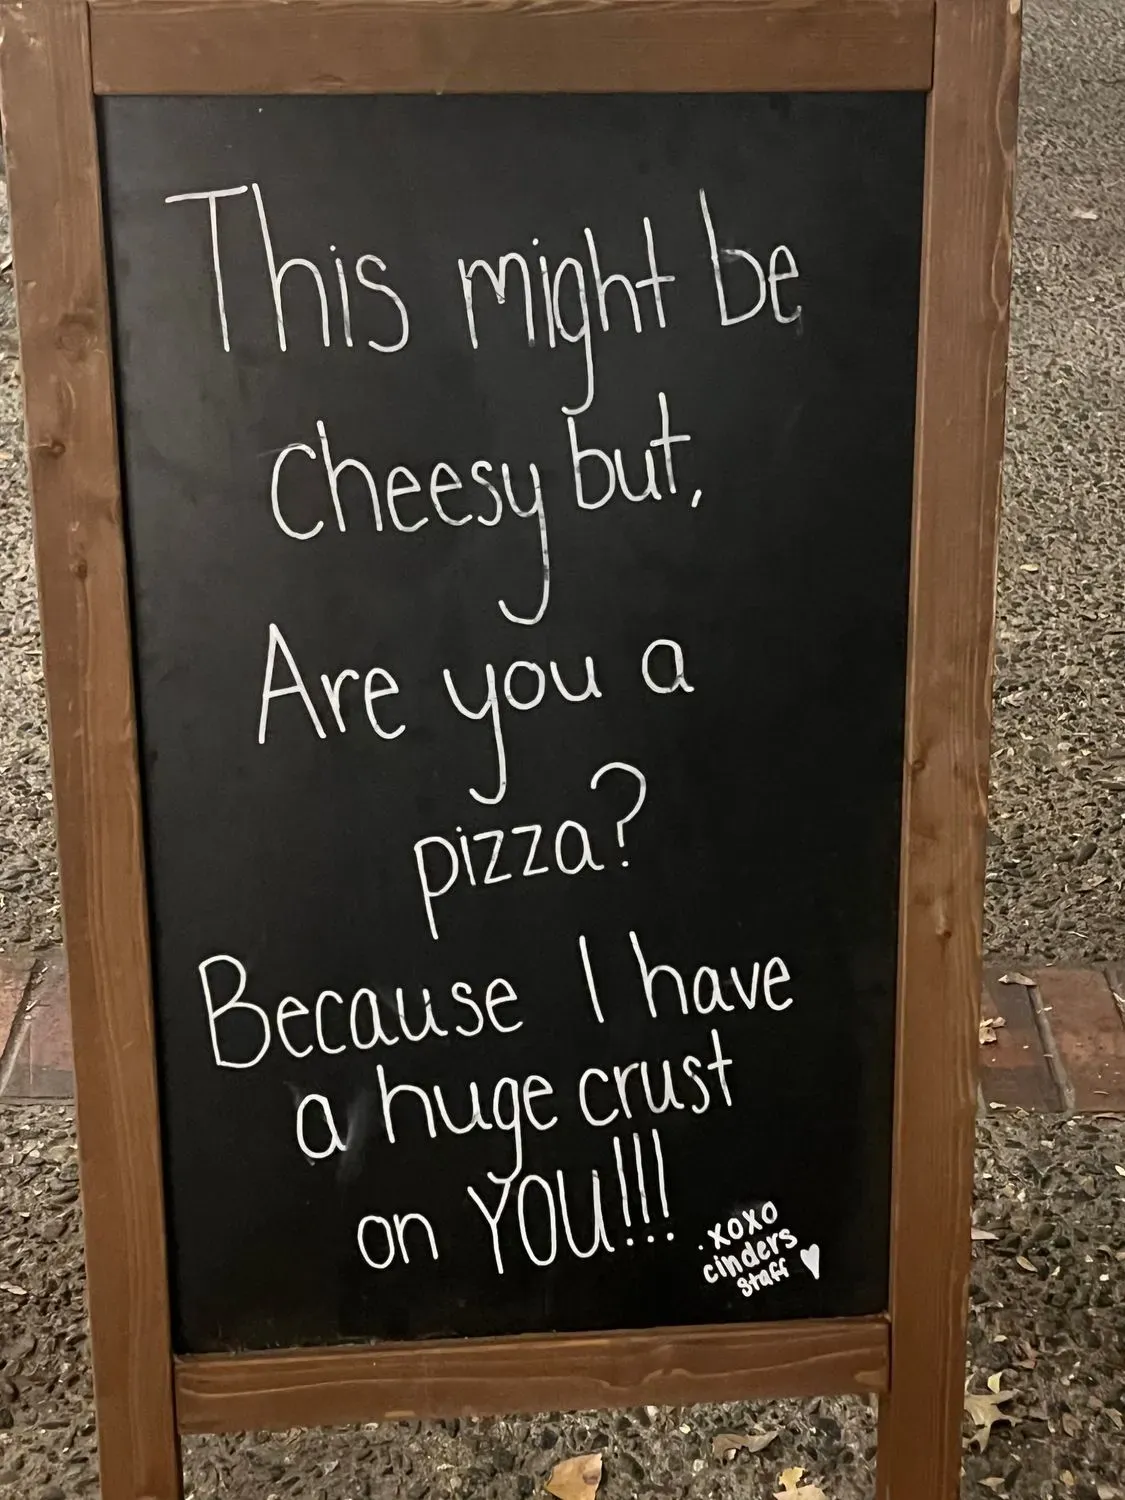 This might be
Cheesy but,
Are you a
pizza?
Because I have
a huge crust
on YOU!!!
.xoxo
cinders
staff ♥